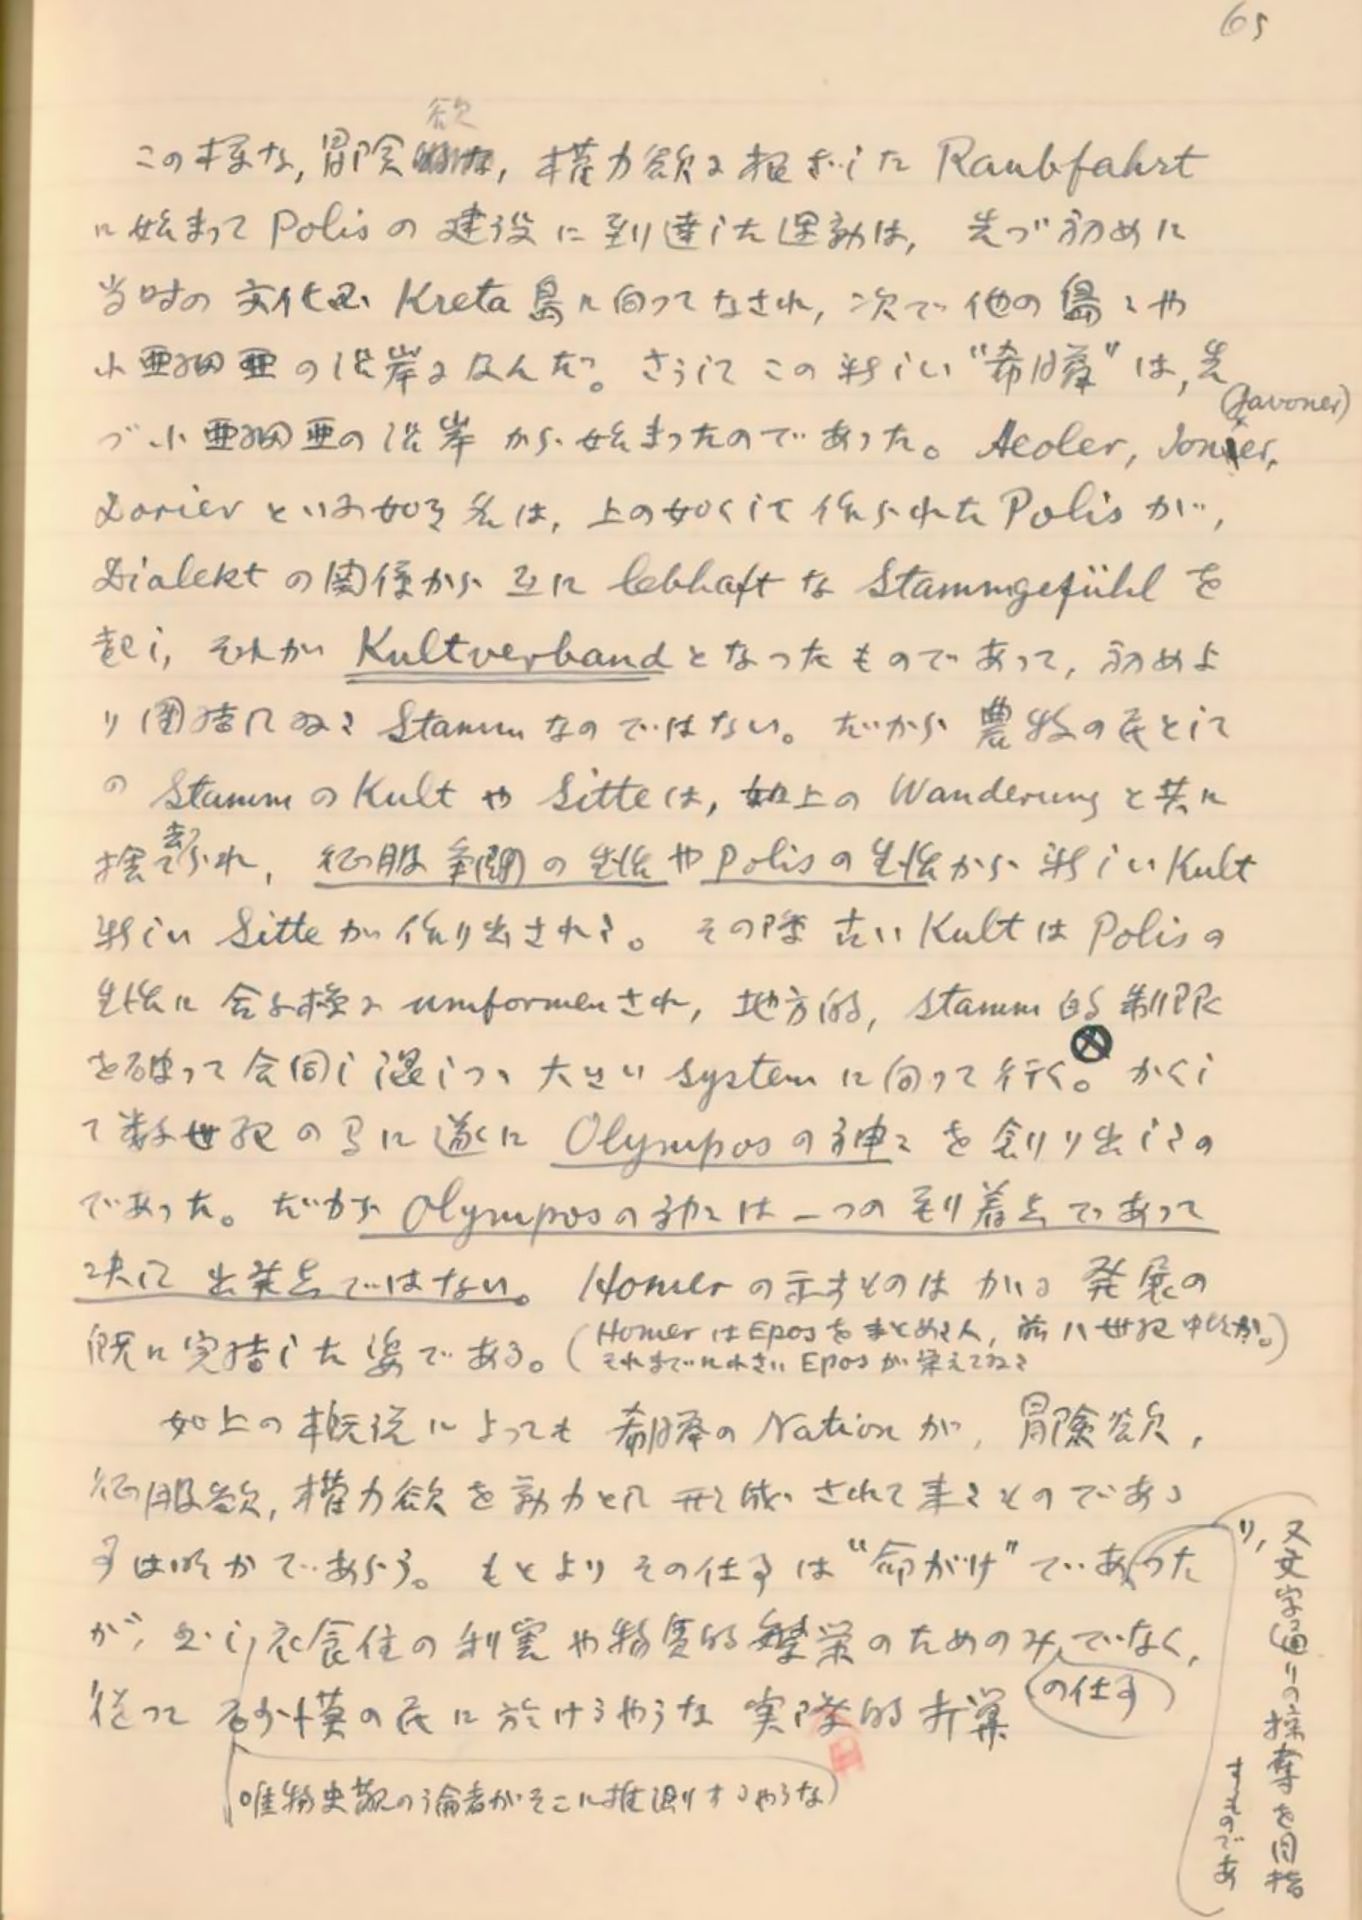 65
欲
この様な, 冒険, 権力欲に根ざした Raubfahrt
に始まって Polis の 建設 に 到達した運動は, 先づ初めに
当時の 文化国 Kreta 島に向ってなされ, 次で 他の 島々や
小亜細亜の沿岸に及んだ。さうして この新しい "希臘" は, 先
(Javoner)
づ小亜細亜の沿岸 から始まったのであった。 Aeoler, Ionier,
Dorier といふ如き名は, 上の如くして作られた Polis が,
Dialekt の関係から互に lebhaft な Stammgefühl を
起し, それが Kultverband となったものであって, 初めよ
り団結してゐる Stamm なのではない。だから 農牧の民として
の Stamm の Kult や Sitte は, 如上の Wanderung と共に
捨て去られ, 征服争闘の生活や Polis の生活から新しい Kult
新しい Sitte が作り出される。その際 古い Kult は Polis の
生活に合ふ様に umformen され, 地方的, Stamm 的制限
を破って会同し混じつゝ大きい System に向って行く。かくし
て数世紀の間に遂に Olympos の神々を創り出したの
であった。だから Olympos の神々は一つの到着点であって
決して出発点ではない。 Homer の示すものはかゝる発展の
既に完結した姿である。(Homer は Epos をまとめた人, 前八世紀中頃か。)
それまでに小さい Epos が栄えてゐる
如上の概説によっても 希臘の Nation が, 冒険欲,
征服欲, 権力欲を動力として形成されて来たものである
事は明かであらう。もとよりその仕事は "命がけ" であった
が, 衣食住の利害や物質的繁栄のためのみでなく,
従って 砂漠の民に於けるやうな 実際的打算
の仕事
唯物史観の論者がそこに推測するやうな
り, 又文字通りの掠奪を目指
すものであ